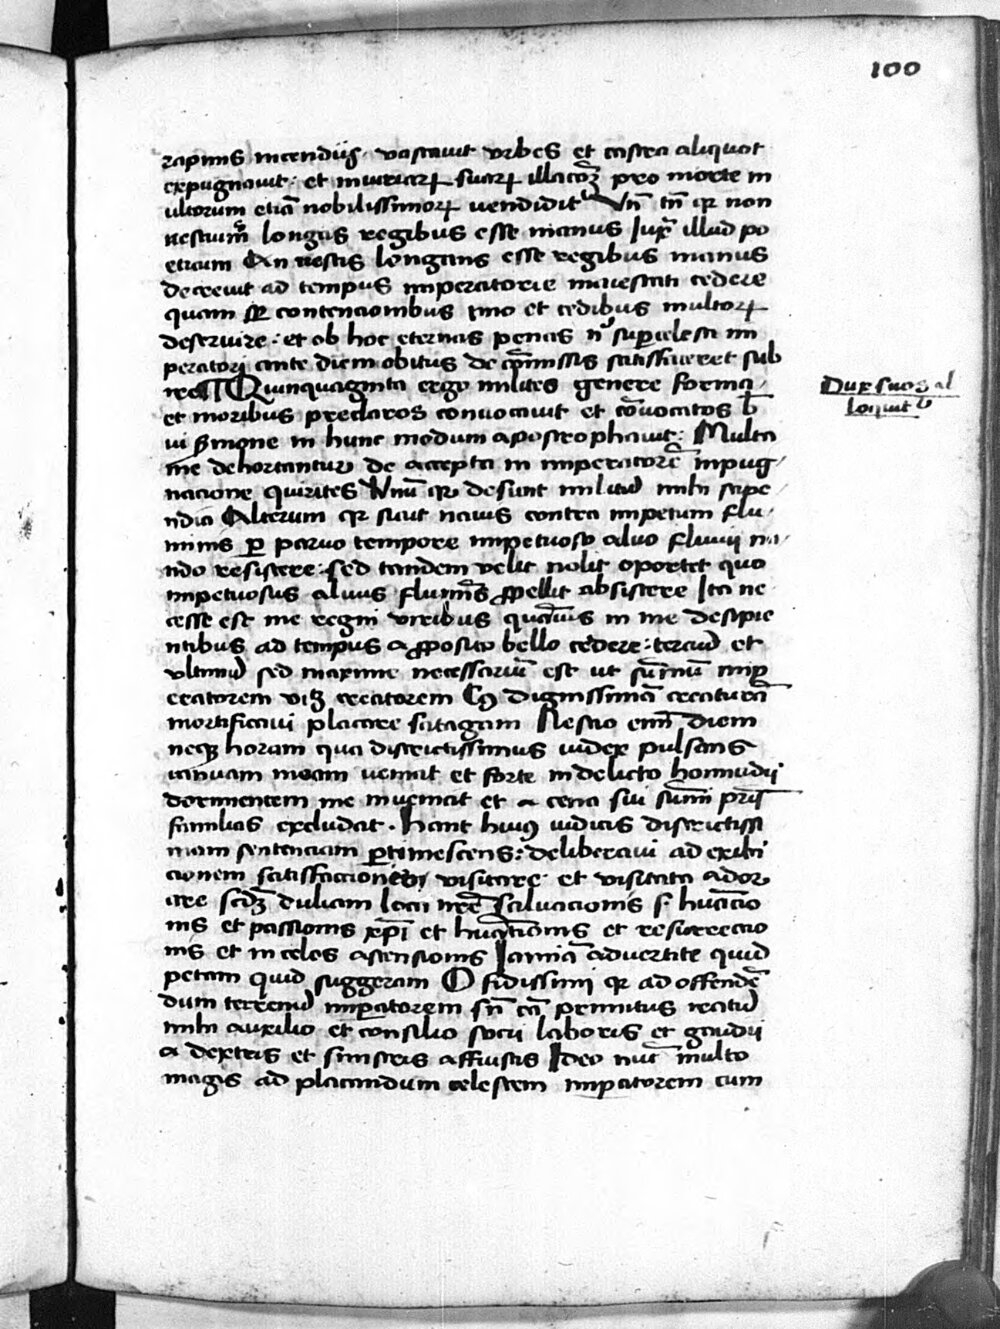 100
rapinis incendiis vastauit vrbes et castra aliquot
expugnauit : et iniuriaꝝ suaꝝ illatoꝝ pro morte m
ultorum etiā nobilissimoꝝ vendidit Vn̄ tn̄ qꝛ non
longas regibus esse manus Iuxͣ illud po
eticum An nescis longans esse regibus manus
decreuit ad tempus imperatorie maiestati cedere
quam contencionibus ymo et cedibus multoꝝ
deseruire : et ob hoc eternas penas nͦ supercelesti im
peratori ante diem obitus de p̄missis satisfaceret sub
ire ¶ Quinquaginta ergo milites genere forma
et moribus preclaros conuocauit et cōuocatos b̄
ui s̄mone in hunc modum apostrophauit : Multa
me dehortantur de accepta in imperatorē inpug
nacione quirites Vnū qꝛ desunt militū mihi stipe
ndia Alterum qꝛ sicut nauis contra impetum flu
minis ꝑ paruo tempore impetuoso aluo fluuii na
ndo resistere : sed tandem velit nolit oportet quo
impetuosus aluus flumīs ꝓpellit absistere Ita ne
cesse est me regni viribus quāuis in me desipie
ntibus ad tempus a ꝓposito bello cedere : terciū et
vltimū sed maxime necessariū est ut sūmū imꝑ
eratorem vidꝫ creatorem Cꝰ dignissimā creaturā
mortificaui placare satagam Nescio enī diem
neqꝫ horam qua districtissimus iudex pulsans
ianuam meam ueniat et forte in delicto homicidii
dormientem me inueniat et a cena sui sūmi pr̄is
familias excludat . Hanc huiꝰ iudicis districtissi
mam sentenciam ꝑtimescens : deliberaui ad exibi
cionem satisfaccionis visitare et visitata ador
are scdꝫ duliam loca nr̄e saluacionis
nis et passionis xp̄i et et resurreccio
nis et in celos ascensionis Iam iā aduertite quid
petam quid suggeram O fidissimi qꝛ ad offendē
dum terrenū imꝑatorem sn̄ cā penitus reatū
mihi auxilio et consilio socii laboris et gaudii
a dextris et sinistris affuistis Ideo nūc multo
magis ad placandum celestem imꝑatorem cum
Dux suos al
loquitᷣ